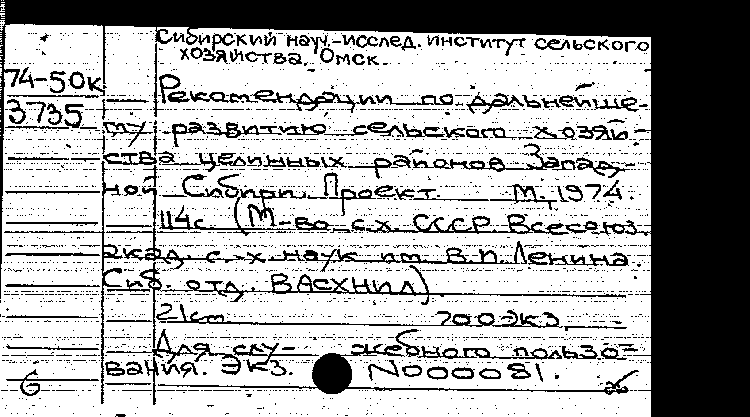 Сибирский науч.-исслед. институт сельского
хозяйства. Омск.
74-50к
3735
Рекомендации по дальнейше-
му развитию сельского хозяй-
ства целинных районов Запад-
ной Сибири. Проект. М., 1974.
114с. (М-во с.х. СССР Всесоюз.
акад. с.-х. наук им. В.И. Ленина.
Сиб. отд. ВАСХНИЛ).
21cm. 700 экз.
Для слу- жебного пользо-
вания. Экз. N000081.
6